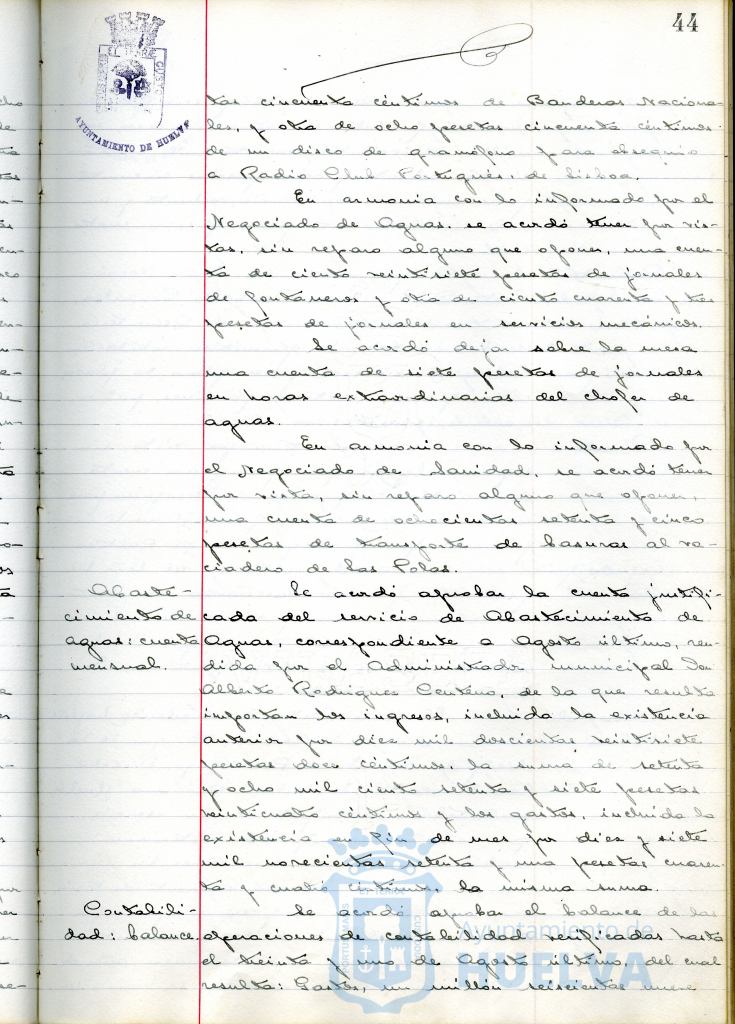 44
AYUNTAMIENTO DE HUELVA
tas cincuenta céntimos de Banderas Naciona-
les, y otra de ocho pesetas cincuenta céntimos
de un disco de gramófono para obsequio
a Radio Club Portugués, de Lisboa.
En armonia con lo informado por el
Negociado de Aguas, se acordó tener por vis-
tas, sin reparo alguno que oponer, una cuen-
ta de ciento veintisiete pesetas de jornales
de fontaneros y otra de ciento cuarenta y tres
pesetas de jornales en servicios mecánicos.
Se acordó dejar sobre la mesa
una cuenta de siete pesetas de jornales
en horas extraordinarias del chofer de
aguas.
En armonia con lo informado por
el Negociado de Sanidad, se acordó tener
por vista, sin reparo alguno que oponer,
una cuenta de ochocientas setenta y cinco
pesetas de transporte de basuras al va-
ciadero de Las Polas.
Abaste-
cimiento de
aguas: cuenta
mensual.
Se acordó aprobar la cuenta justifi-
cada del servicio de Abastecimiento de
Aguas, correspondiente a Agosto último, ren-
dida por el Administrador municipal Don
Alberto Rodriguez Centeno, de la que resulta
importan los ingresos, incluida la existencia
anterior por diez mil doscientas veintisiete
pesetas doce céntimos, la suma de setenta
y ocho mil ciento setenta y siete pesetas
veinticuatro céntimos y los gastos, incluida la
existencia en fin de mes por diez y siete
mil novecientas setenta y una pesetas cuaren-
ta y cuatro céntimos, la misma suma.
Contabili-
dad: balance.
Se acordó aprobar el balance de las
operaciones de contabilidad verificadas hasta
el treinta y uno de Agosto último, del cual
resulta: Gastos, un millón seiscientas nueve
Ayuntamiento de
HUELVA